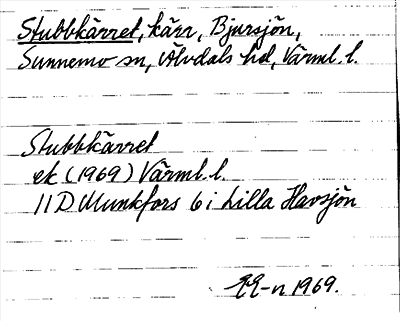 Stubbkärret, kärr, Bjursjön,
Sunnemo sn, Älvdals hd, Värml. l.
Stubbkärret
ek (1969) Värml. l.
11D Munkfors 6i Lilla Havsjön
EE-n 1969.